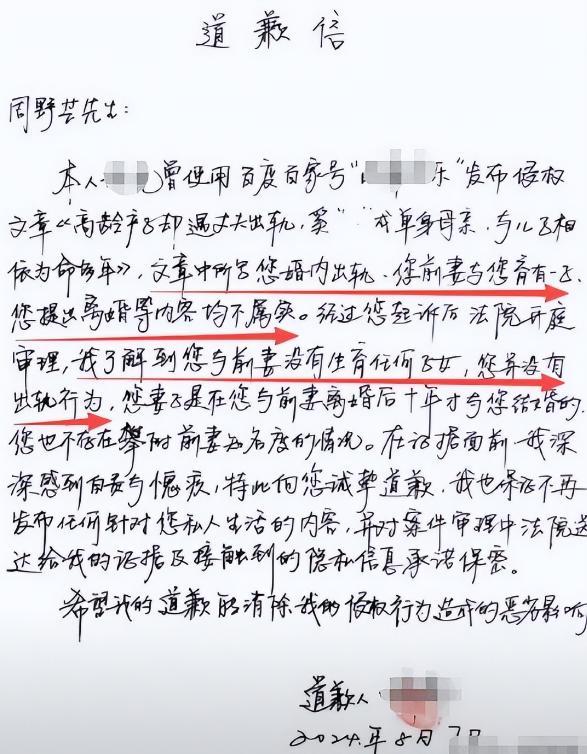 道歉信
周野芒先生：
本人 曾使用百度百家号“ 乐”发布侵权
文章《高龄产子却遇丈夫出轨，奚 成单身母亲，与儿子相
依为命多年》，文章中所写您婚内出轨、您前妻与您育有一子、
您提出离婚等内容均不属实。经过您起诉后法院开庭
审理，我了解到您与前妻没有生育任何子女，您并没有
出轨行为，您妻子是在您与前妻离婚后十年才与您结婚的，
您也不存在攀附前妻知名度的情况。在证据面前，我深
深感到自责与愧疚，特此向您诚挚道歉，我也保证不再
发布任何针对您私人生活的内容，并对案件审理中法院送
达给我的证据及接触到的隐私信息承诺保密。
希望我的道歉能消除我的侵权行为造成的恶劣影响
道歉人
2024年8月7日